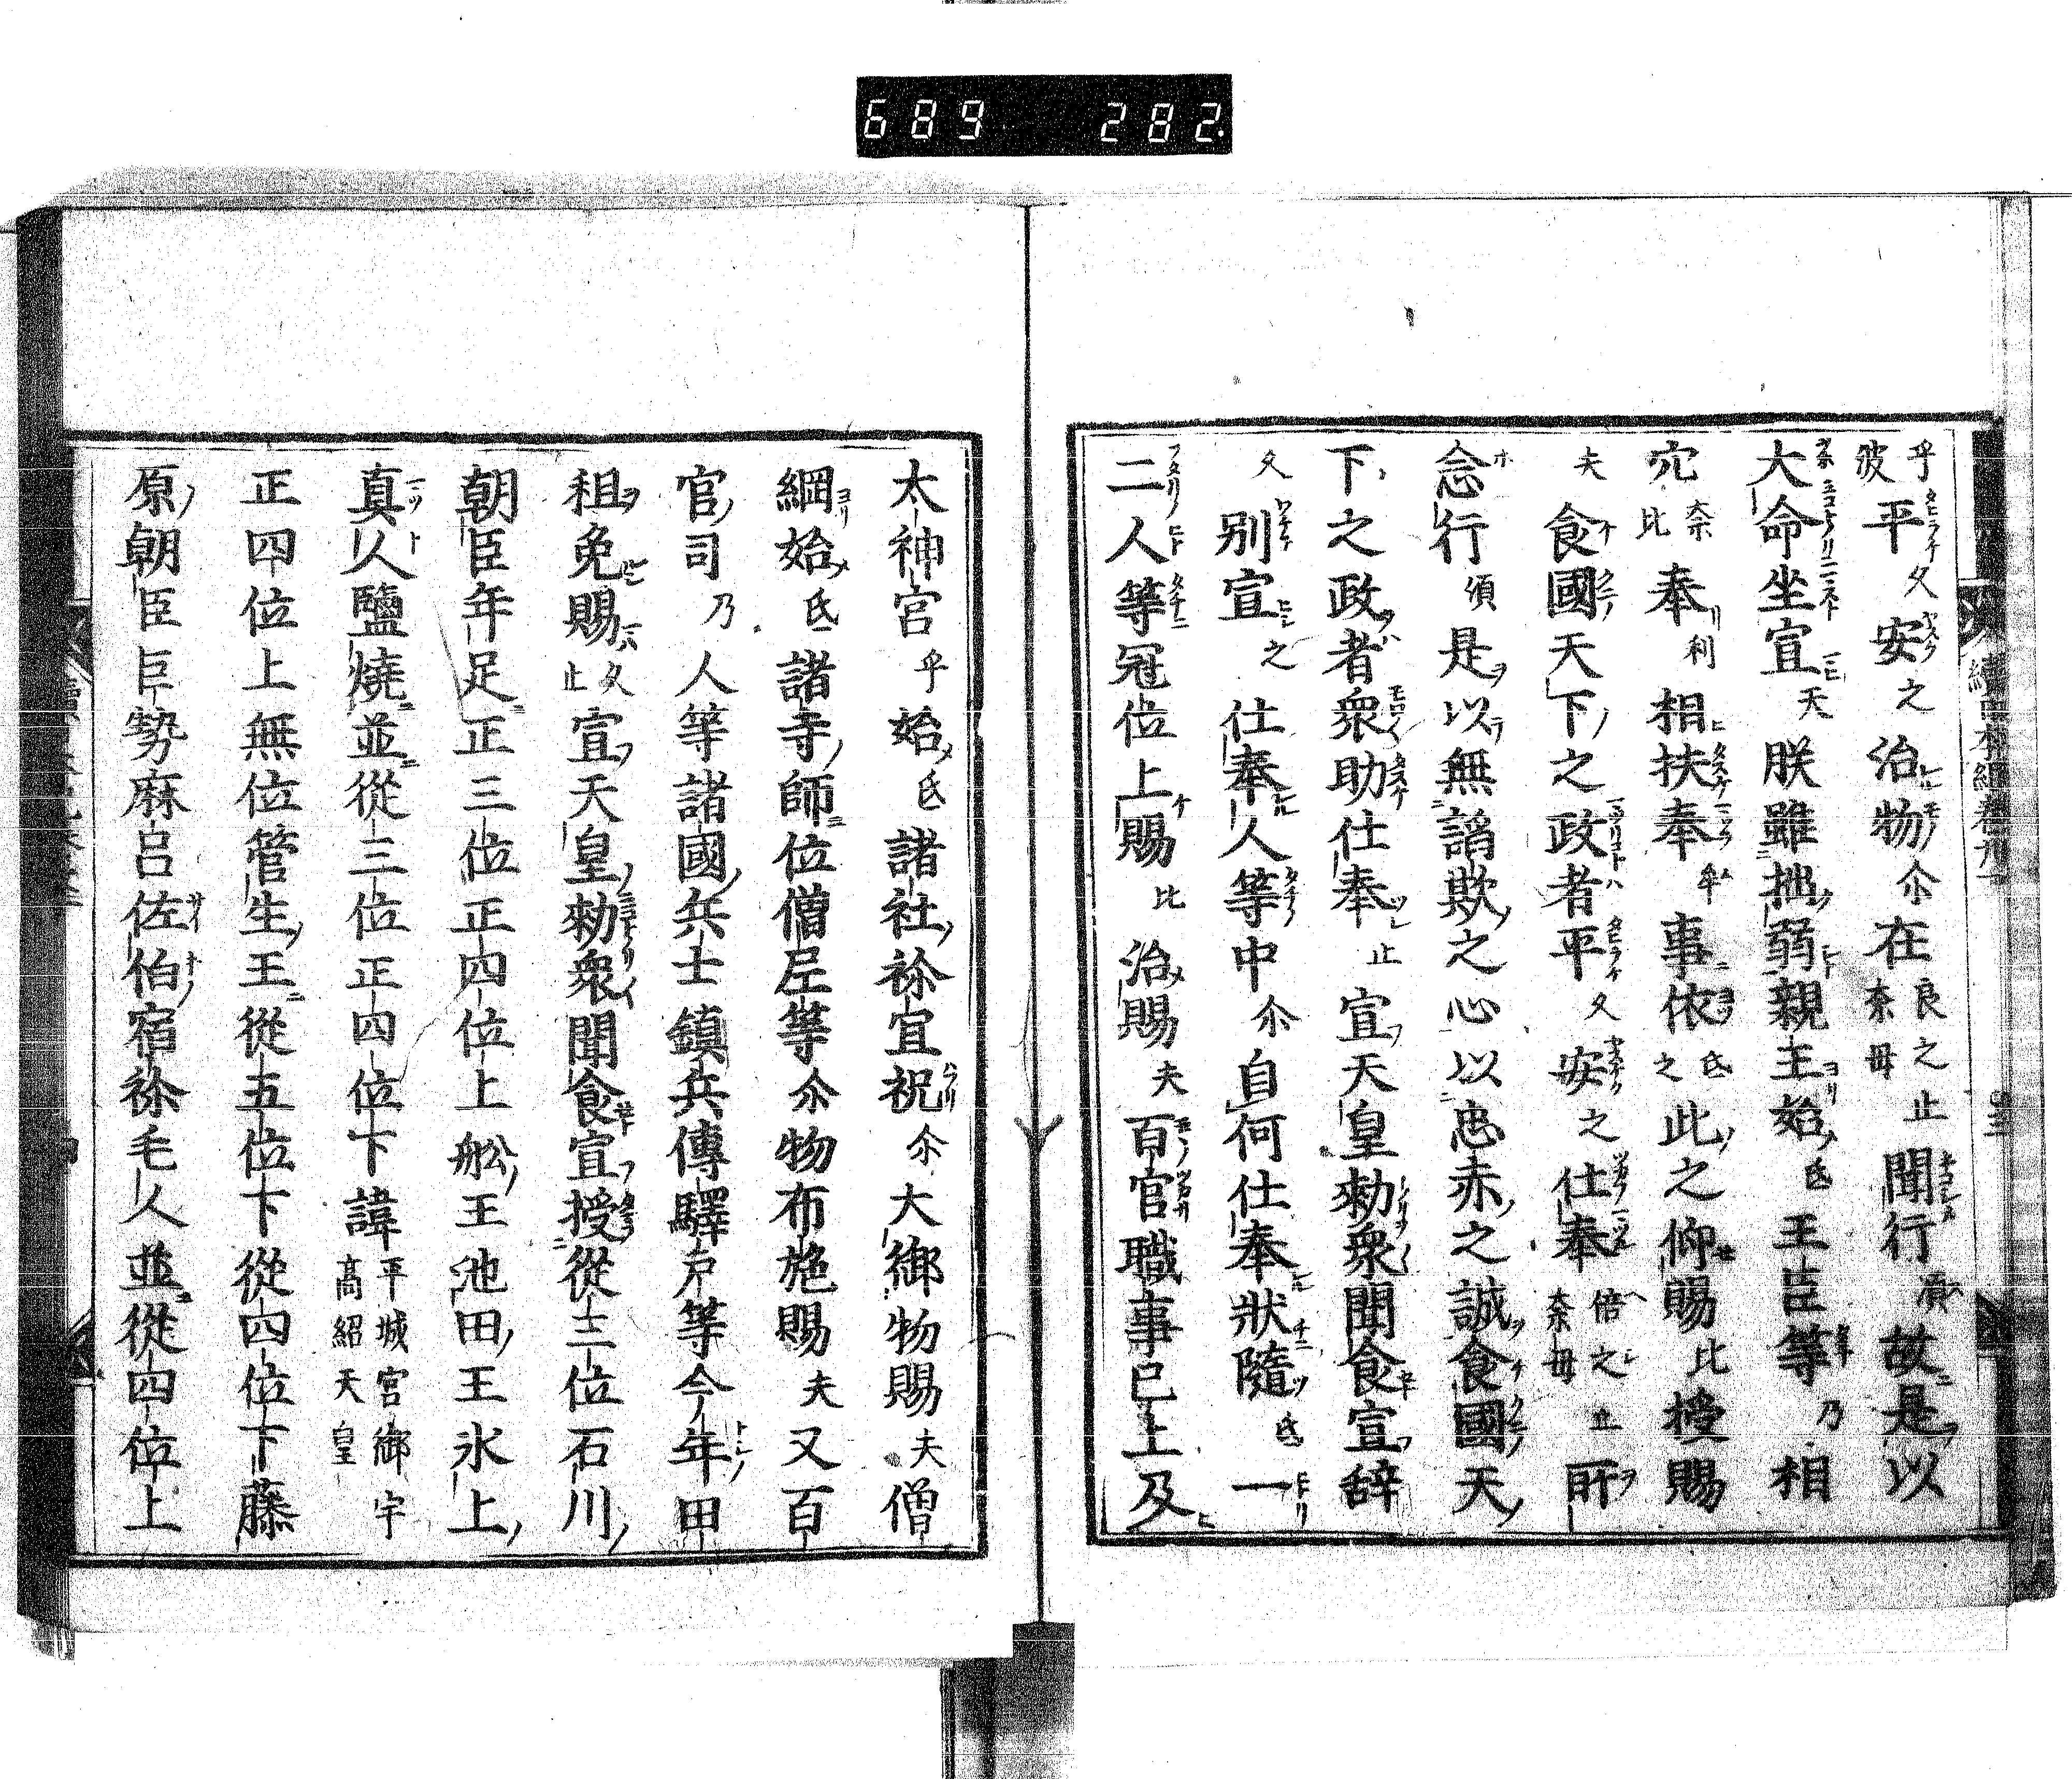 689 282
乎波平久安之治物尒在良之止奈毋聞行湏故是以
大命坐宣天朕雖拙弱親王始氐王臣等乃相
穴奈比奉利相扶奉牟事依氐之此之仰賜比授賜
夫食國天下之政者平久安之仕奉倍之止奈毋所
念行湏是以無謟欺之心以忠赤之誠食國天
下之政者衆助仕奉止宣天皇勑衆聞食宣辞
久別宣之仕奉人等中尒自何仕奉狀隨氐一
二人等冠位上賜比治賜夫百官職事已上及
太神宮乎始氐諸社祢宜祝尒大御物賜夫僧
綱始氐諸寺師位僧尼等尒物布施賜夫又百
官司乃人等諸國兵士鎮兵傳驛戸等今年田
租免賜久止宣天皇勑衆聞食宣授從三位石川
朝臣年足正三位正四位上舩王池田王氷上
真人鹽燒並從三位正四位下諱平城宮御宇高紹天皇
正四位上無位管生王從五位下從四位下藤
原朝臣巨勢麻呂佐伯宿祢毛人並從四位上